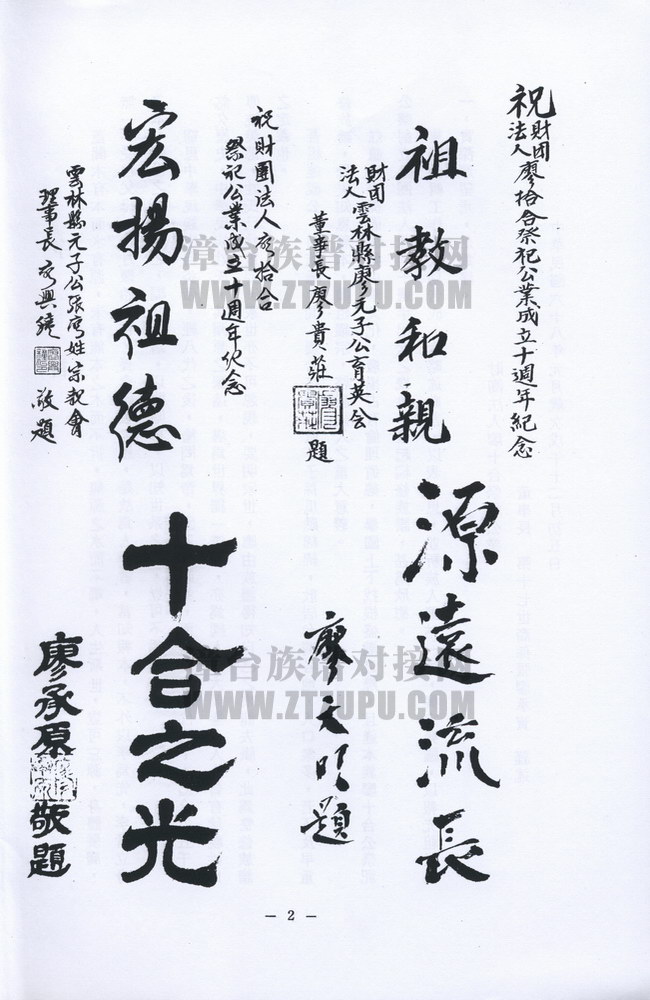 祝財団法人廖拾合祭祀公業成立十週年紀念
祖教和親
財団法人雲林縣廖元子公育英会
董事長廖貴莊題
祝財團法人廖拾合
祭祀公業成立十週年紀念
宏揚祖德
雲林縣元子公張廖姓宗親會
理事長廖興 敬題
源遠流長
廖文 題
十合之光
廖承原敬題
漳台族谱对接网
WWW.ZTZUPU.COM
漳台族谱对接网
WWW.ZTZUPU.COM
— 2 —